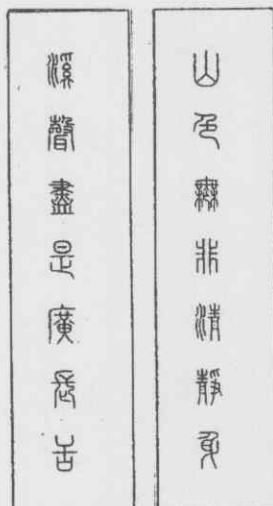 山色無非清靜身
溪聲盡是廣長舌